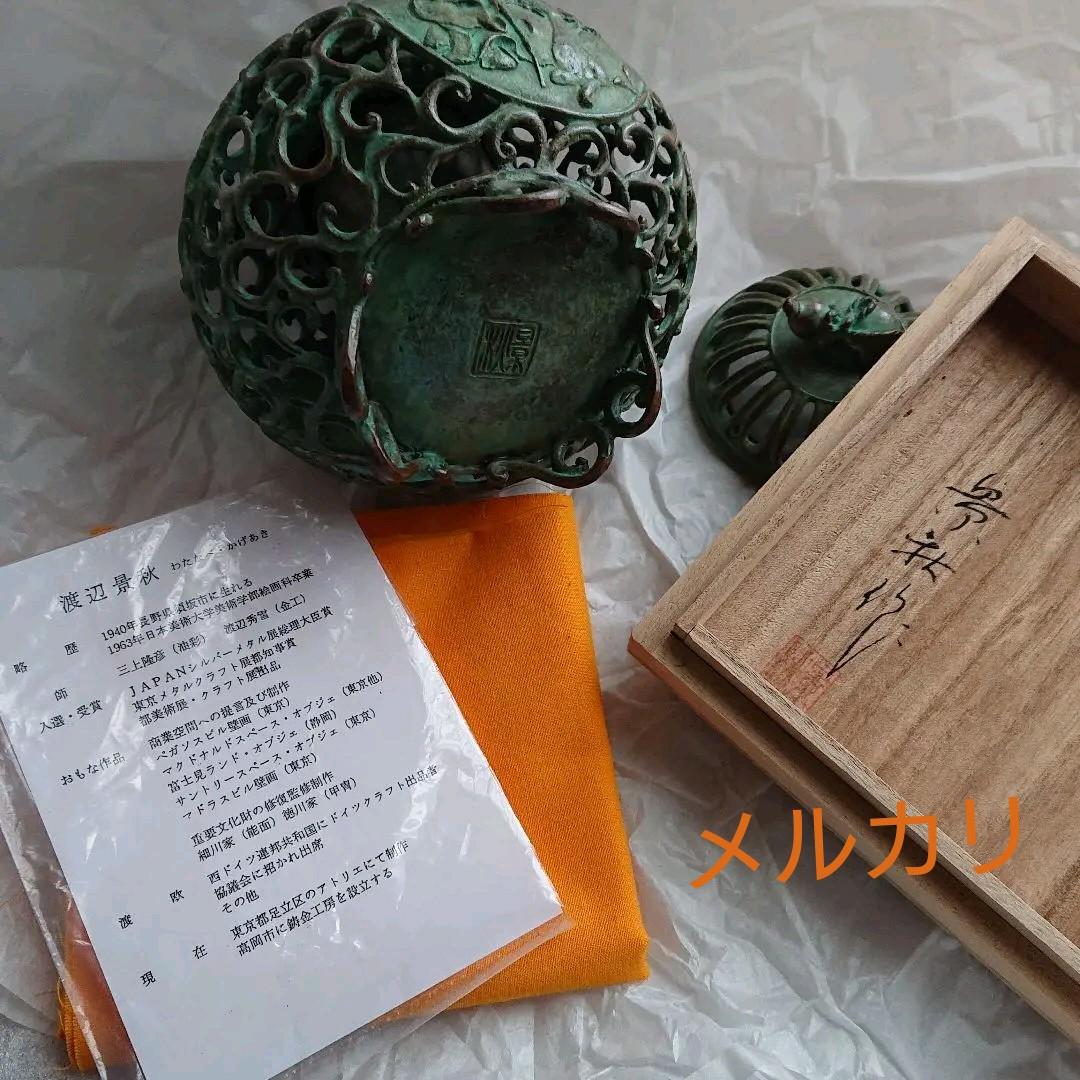 景秋
渡辺景秋 わたなべ かげあき
略歴 1940年長野県須坂市に生れる
1963年日本美術大学美術学部絵画科卒業
師 三上隆彦（油彩） 渡辺秀雪（金工）
入選・受賞 JAPANシルバーメタル展総理大臣賞
東京メタルクラフト展都知事賞
都美術展・クラフト展出品
おもな作品 商業空間への提言及び制作
ペガソスビル壁画（東京）
マクドナルドスペース・オブジェ（東京他）
富士見ランド・オブジェ（静岡）
サントリースペース・オブジェ（東京）
マドラスビル壁画（東京）
重要文化財の修復監修制作
細川家（能面）徳川家（甲冑）
渡欧 西ドイツ連邦共和国にドイツクラフト出品者
協議会に招かれ出席
その他
現在 東京都足立区のアトリエにて制作
高岡市に鋳金工房を設立する
景秋作
メルカリ